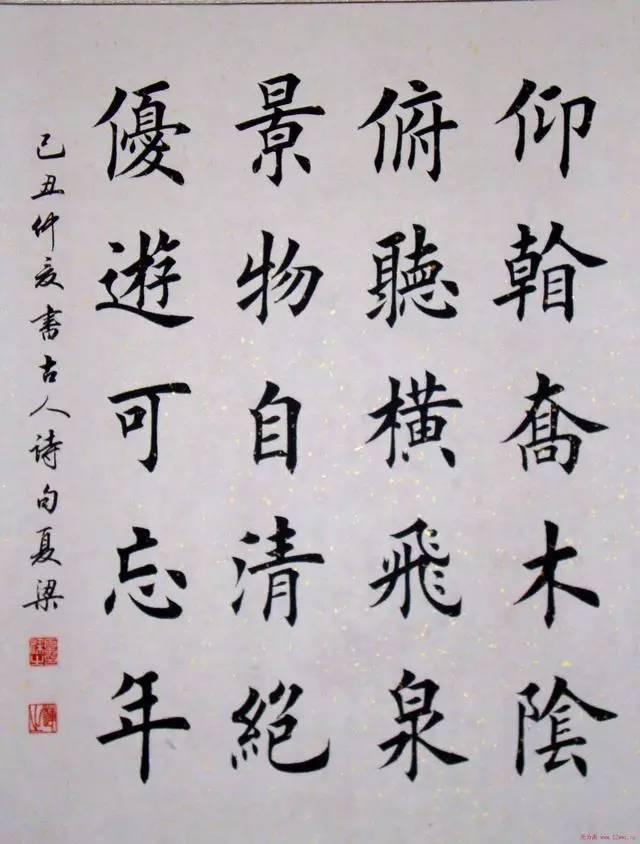 仰喬木陰
俯聽橫飛泉
景物自清絕
優遊可忘年
己丑仲夏書古人詩句夏梁